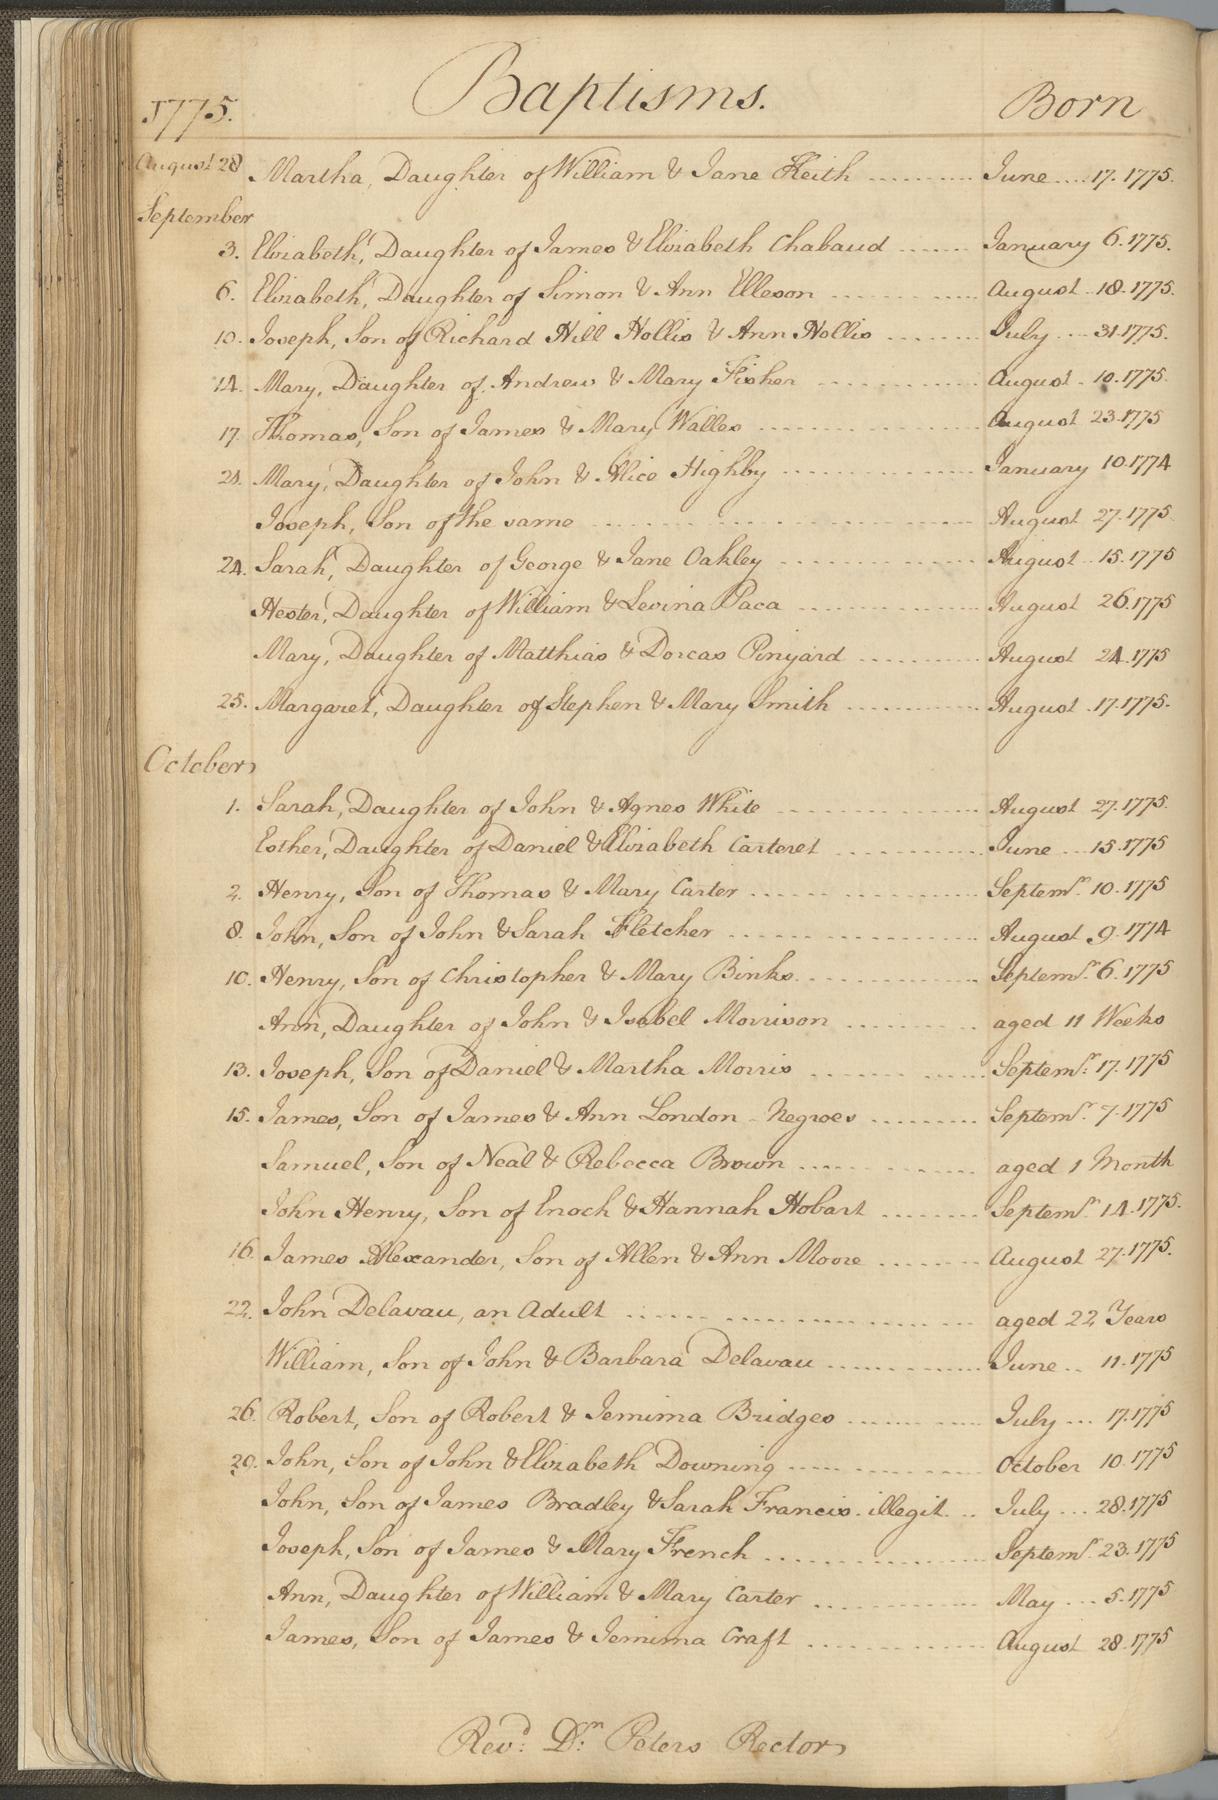 1775. Baptisms. Born
August 28 Martha, Daughter of William & Jane Keith .......... June .... 17. 1775.
September
3. Elizabeth, Daughter of James & Elizabeth Chabaud ...... January 6. 1775.
6. Elizabeth, Daughter of Simon & Ann Elleson .......... August 18. 1775.
10. Joseph, Son of Richard Hill Hollis & Ann Hollis ........ July ... 31. 1775.
14. Mary, Daughter of Andrew & Mary Fisher .......... August . 10. 1775.
17. Thomas, Son of James & Mary Walles .......... August 23. 1775
21. Mary, Daughter of John & Alice Highby .......... January 10. 1774
Joseph, Son of the same .......... August 27. 1775
24. Sarah, Daughter of George & Jane Oakley .......... August .. 15. 1775
Hester, Daughter of William & Levina Paca .......... August 26. 1775
Mary, Daughter of Matthias & Dorcas Pinyard .......... August 24. 1775
25. Margaret, Daughter of Stephen & Mary Smith .......... August . 17. 1775.
October
1. Sarah, Daughter of John & Agnes White .......... August 27. 1775.
Esther, Daughter of Daniel & Elizabeth Carteret .......... June ... 15. 1775
2. Henry, Son of Thomas & Mary Carter .......... Septemr. 10. 1775
8. John, Son of John & Sarah Fletcher .......... August 9. 1774
10. Henry, Son of Christopher & Mary Binks .......... Septemr. 6. 1775
Ann, Daughter of John & Isabel Morrison .......... aged 11 Weeks
13. Joseph, Son of Daniel & Martha Morris .......... Septemr. 17. 1775
15. James, Son of James & Ann London - Negroes ......... Septemr. 7. 1775
Samuel, Son of Neal & Rebecca Brown .......... aged 1 Month
John Henry, Son of Enoch & Hannah Hobart ........ Septemr. 14. 1775.
16. James Alexander, Son of Allen & Ann Moore ........ August 27. 1775.
22. John Delavau, an Adult .......... aged 22 Years
William, Son of John & Barbara Delavau .......... June .. 11. 1775
26. Robert, Son of Robert & Jemima Bridges .......... July ... 17. 1775
29. John, Son of John & Elizabeth Downing .......... October 10. 1775
John, Son of James Bradley & Sarah Francis. illegit... July ... 28. 1775
Joseph, Son of James & Mary French .......... Septemr. 23. 1775
Ann, Daughter of William & Mary Carter .......... May ... 5. 1775
James, Son of James & Jemima Craft .......... August 28. 1775
Revd. Dr. Peters Rector